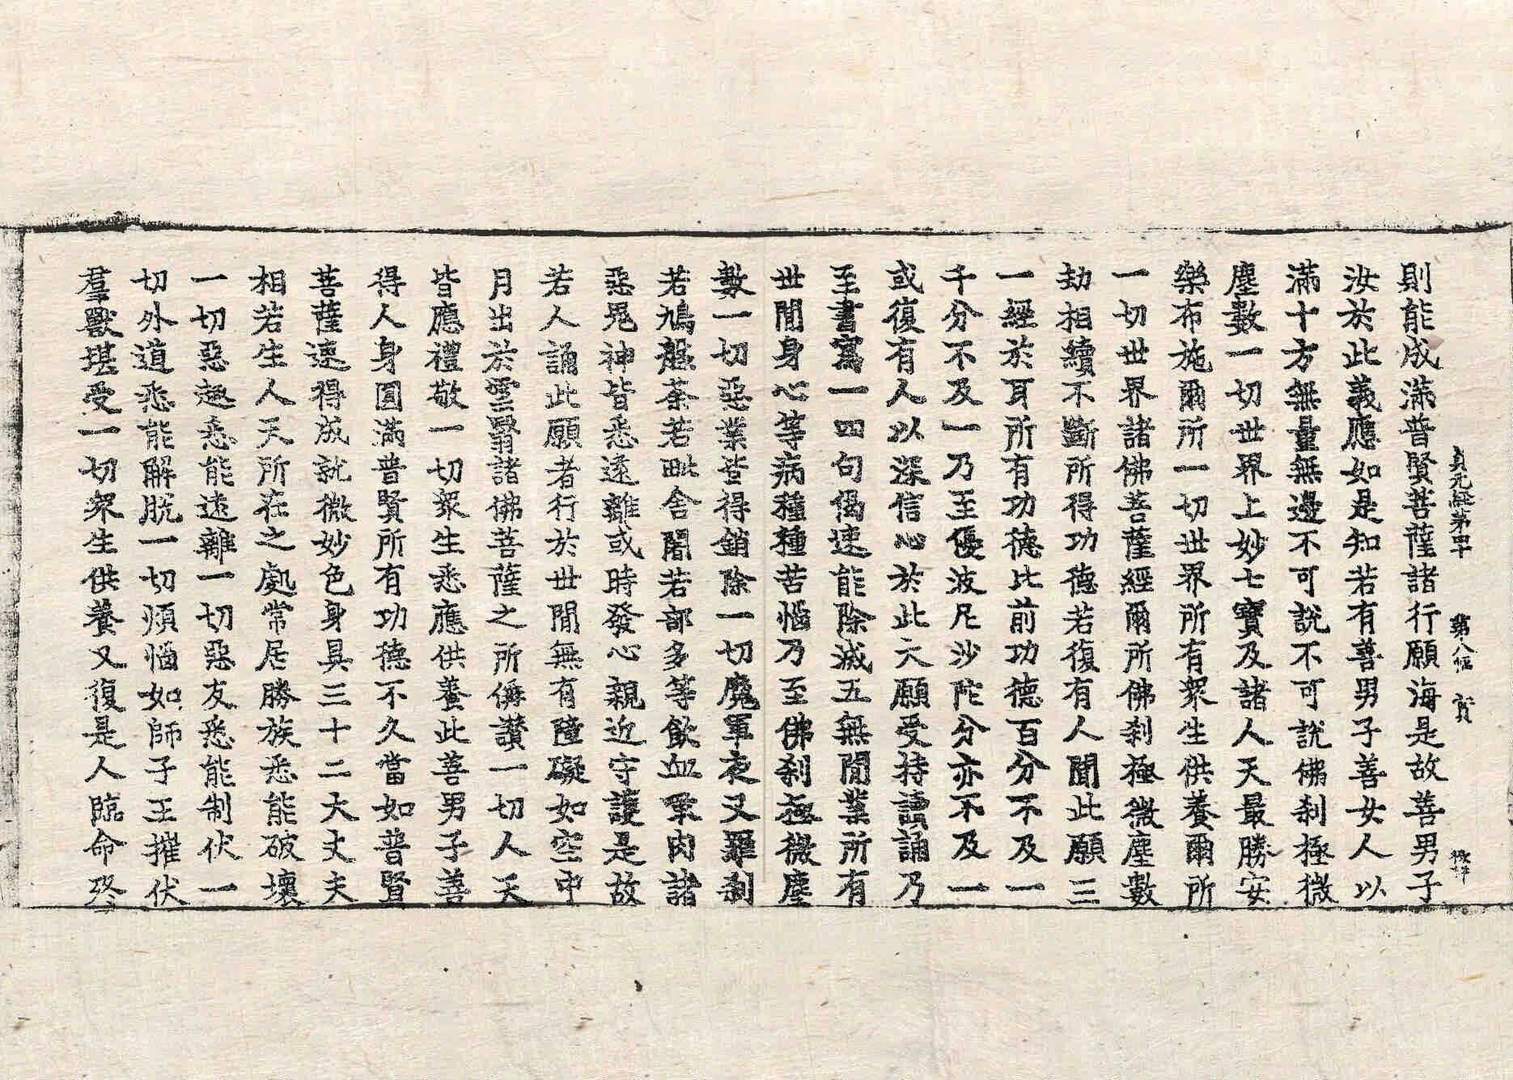 貞元經第四十 第八幅 賓
則能成滿普賢菩薩諸行願海是故善男子
汝於此義應如是知若有善男子善女人以
滿十方無量無邊不可說不可說佛刹極微
塵數一切世界上妙七寶及諸人天最勝安
樂布施爾所一切世界所有衆生供養爾所
一切世界諸佛菩薩經爾所佛刹極微塵數
劫相續不斷所得功德若復有人聞此願三
一經於耳所有功德比前功德百分不及一
千分不及一乃至優波尼沙陀分亦不及一
或復有人以深信心於此大願受持讀誦乃
至書寫一四句偈速能除滅五無間業所有
世間身心等病種種苦惱乃至佛刹極微塵
數一切惡業皆得銷除一切魔軍夜叉羅刹
若鳩槃茶若毗舍闍若部多等飲血啗肉諸
惡鬼神皆悉遠離或時發心親近守護是故
若人誦此願者行於世間無有障礙如空中
月出於雲翳諸佛菩薩之所偁讚一切人天
皆應禮敬一切衆生悉應供養此善男子善
得人身圓滿普賢所有功德不久當如普賢
菩薩速得成就微妙色身具三十二大丈夫
相若生人天所在之處常居勝族悉能破壞
一切惡趣悉能遠離一切惡友悉能制伏一
切外道悉能解脫一切煩惱如師子王摧伏
羣獸堪受一切衆生供養又復是人臨命終